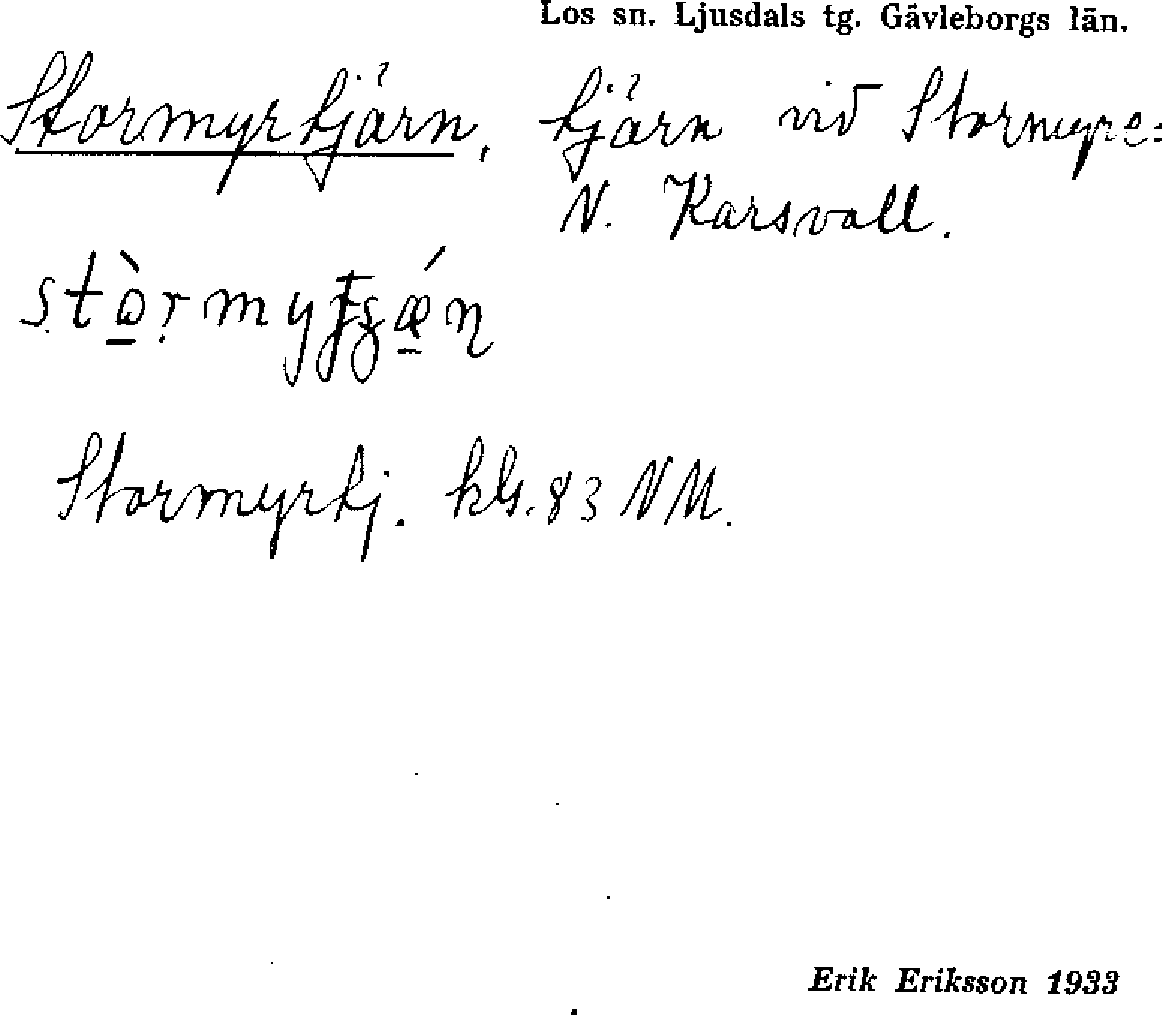 Los sn. Ljusdals tg. Gävleborgs län.
Stormyrtjärn, tjärn vid Stormyre=
N. Karsvall.
Stormyrtj. kbl. 83 NM.
Erik Eriksson 1933